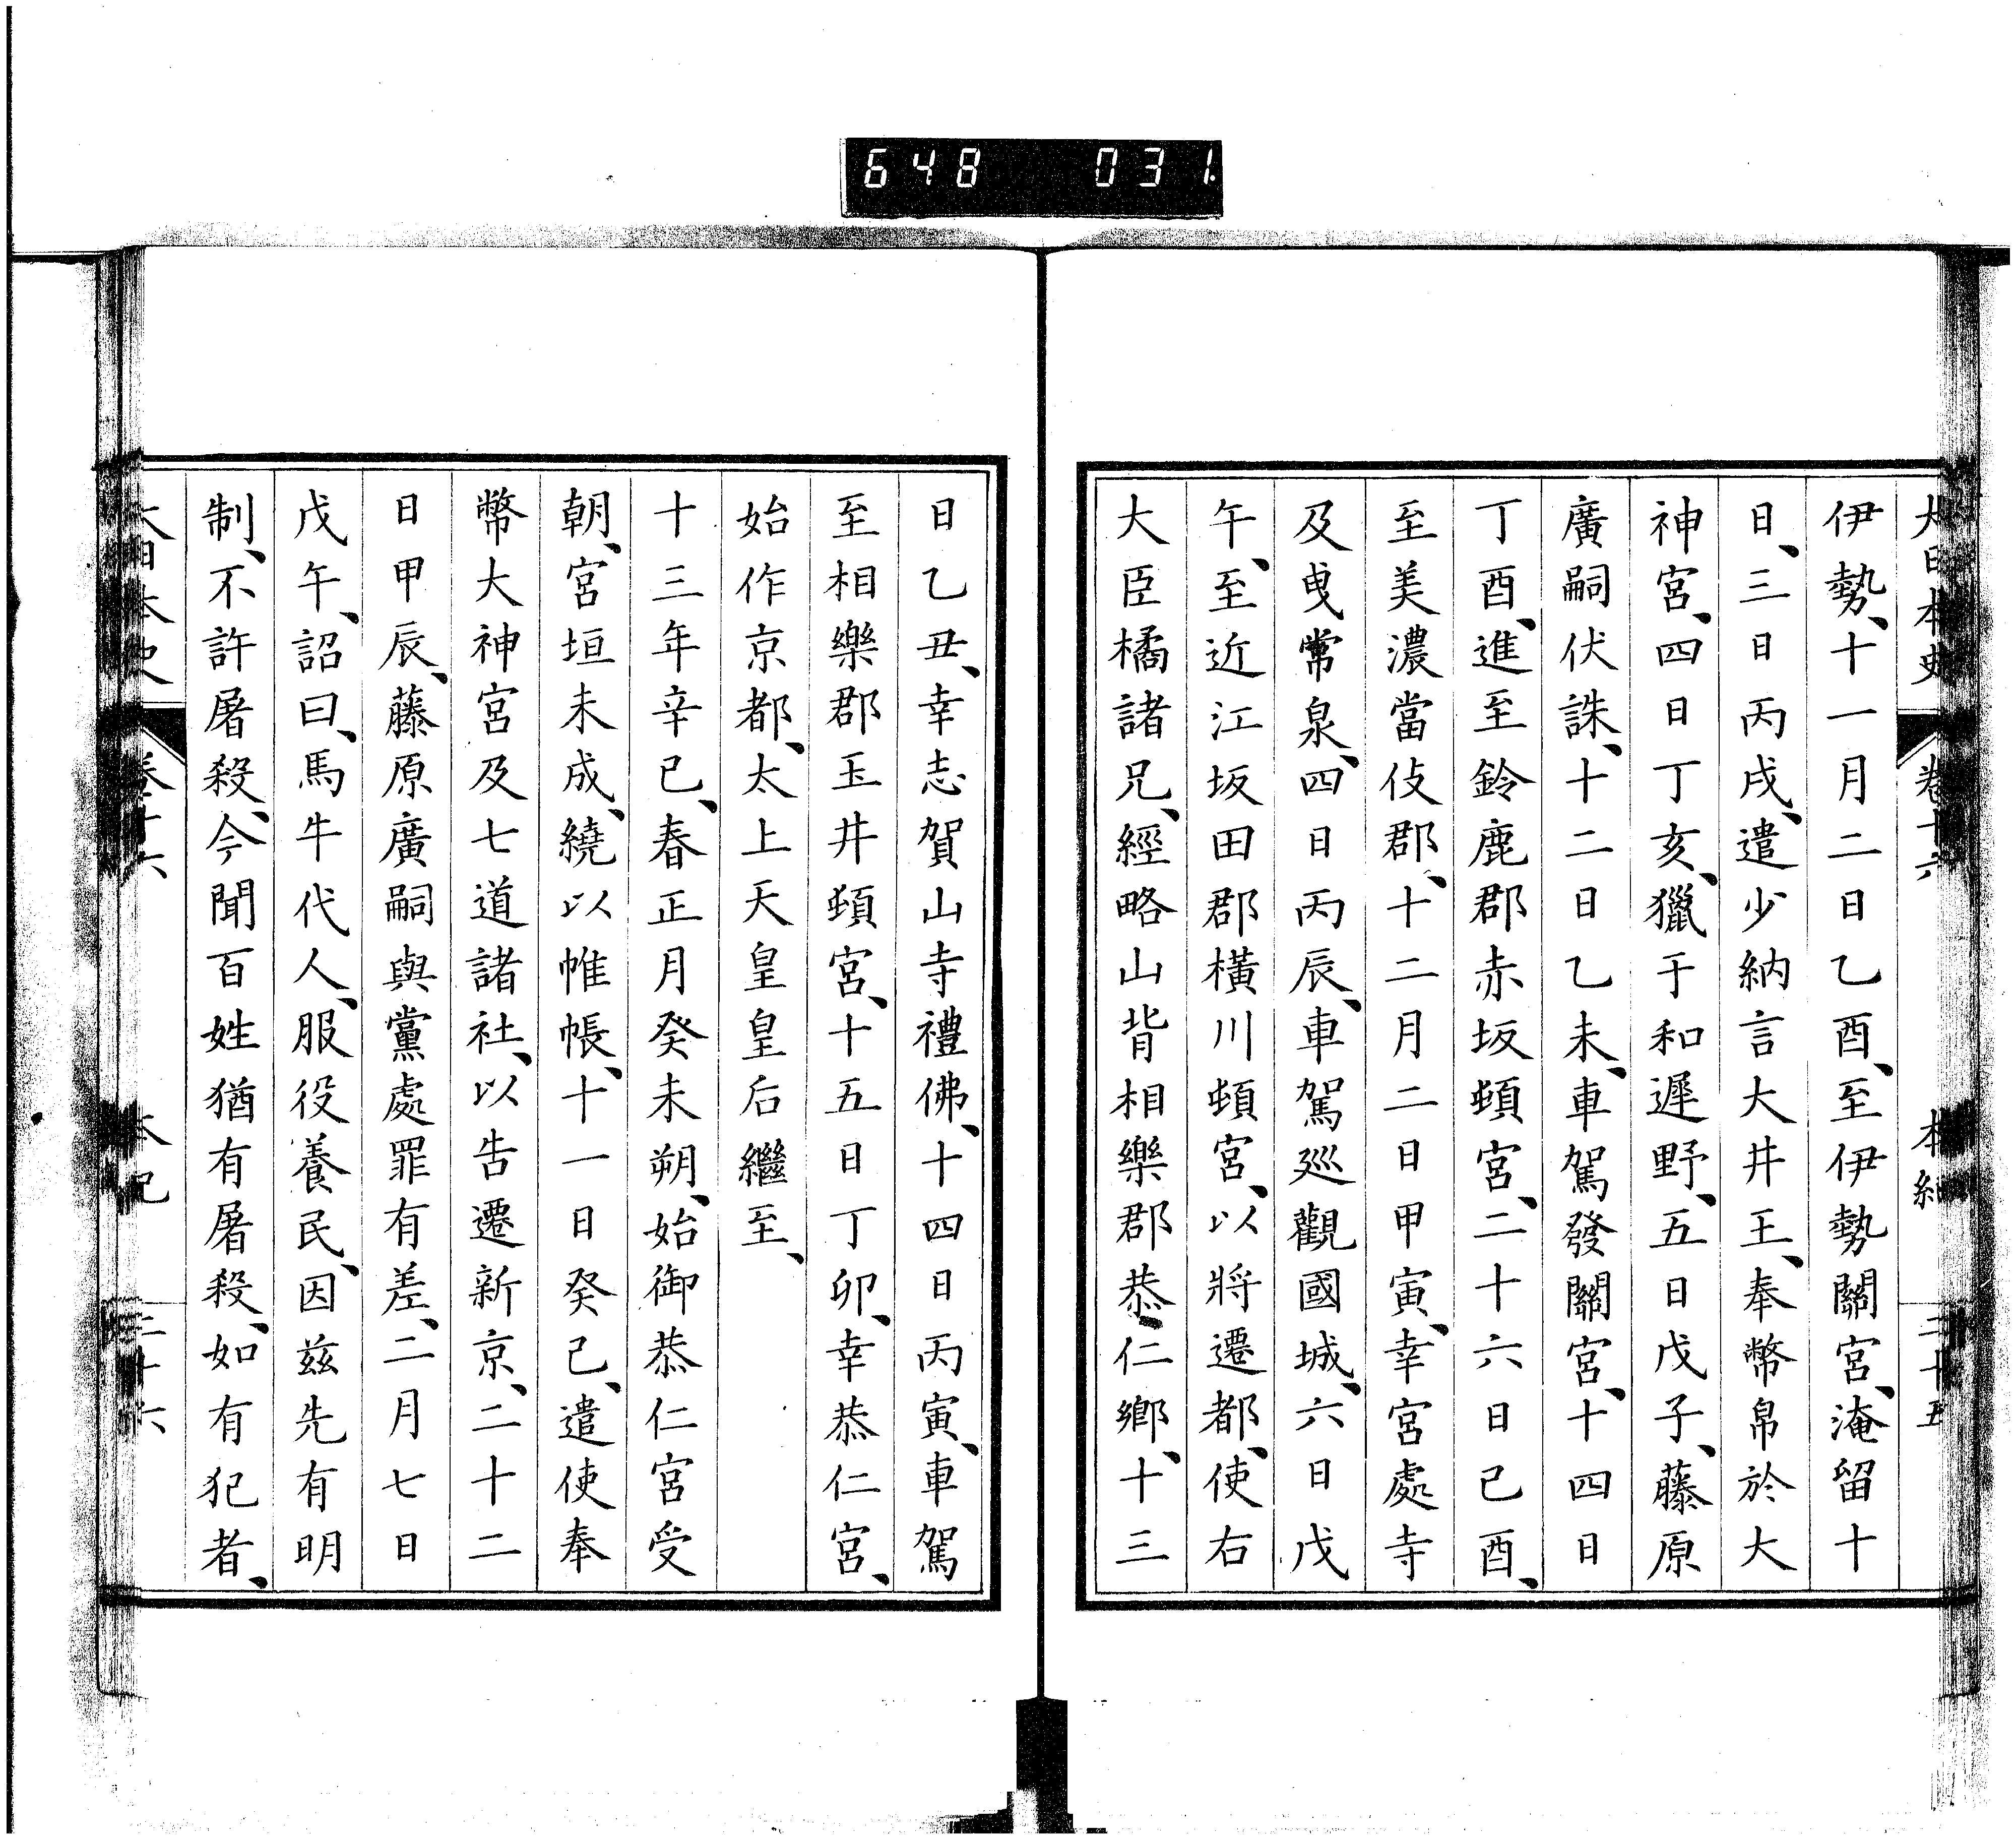 648 031
大日本史 卷十六 本紀 二十五
伊勢、十一月二日乙酉、至伊勢關宮、淹留十
日、三日丙戌、遣少納言大井王、奉幣帛於大
神宮、四日丁亥、獵于和遲野、五日戊子、藤原
廣嗣伏誅、十二日乙未、車駕發關宮、十四日
丁酉、進至鈴鹿郡赤坂頓宮、二十六日己酉、
至美濃當伎郡、十二月二日甲寅、幸宮處寺
及曳常泉、四日丙辰、車駕巡觀國城、六日戊
午、至近江坂田郡橫川頓宮、以將遷都、使右
大臣橘諸兄、經略山背相樂郡恭仁鄉、十三
日乙丑、幸志賀山寺禮佛、十四日丙寅、車駕
至相樂郡玉井頓宮、十五日丁卯、幸恭仁宮、
始作京都、太上天皇皇后繼至、
十三年辛巳、春正月癸未朔、始御恭仁宮受
朝、宮垣未成、繞以帷帳、十一日癸巳、遣使奉
幣大神宮及七道諸社、以告遷新京、二十二
日甲辰、藤原廣嗣與黨處罪有差、二月七日
戊午、詔曰、馬牛代人、服役養民、因茲先有明
制、不許屠殺、今聞百姓猶有屠殺、如有犯者、
大日本史 卷十六 本紀 二十六